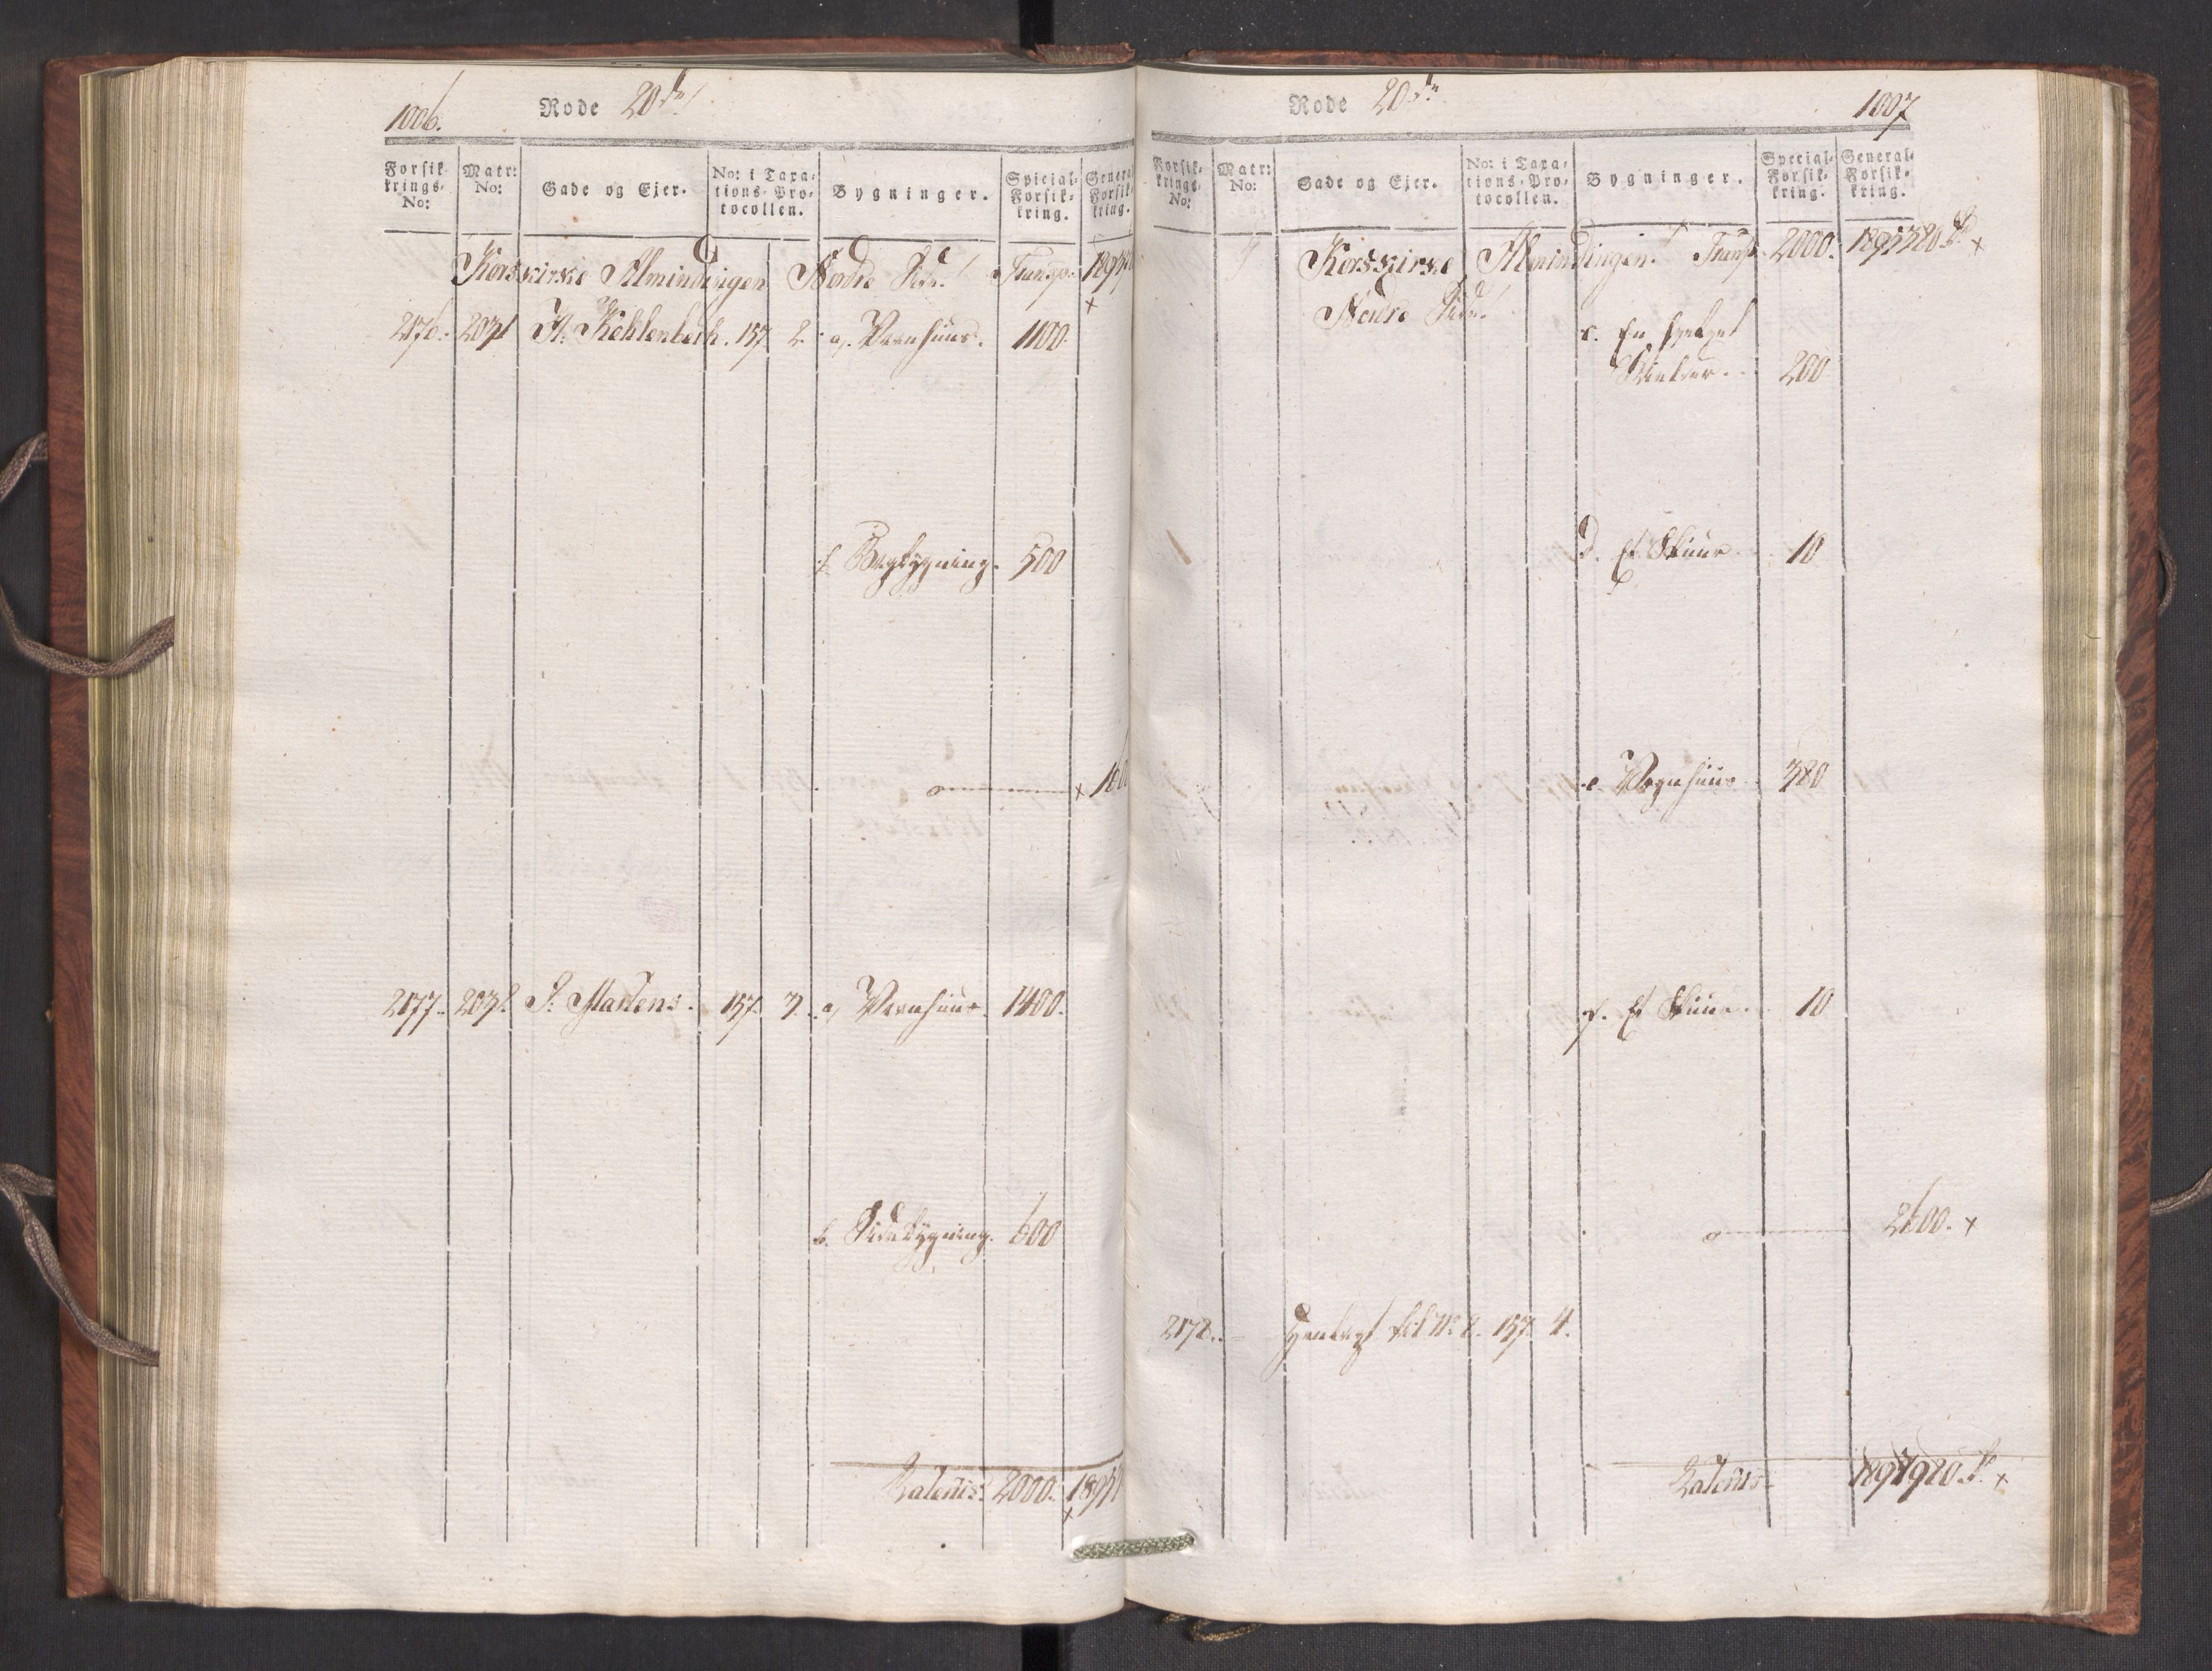 1006.
Rode 20de
Forsik-
krings-
No:
Matr:
No:
Gade og Ejer.
No: i Taxa-
tions-Pro-
tocollen.
Bygninger.
Spicial-
Forsik-
kring.
General
Forsik-
kring.
Korskirke Almindingen Nordre Side. Transp.
2176. 2031 H. Kohlenbach. 157 2. a. Vaanhuus. 1100.
b. Bagbygning. 500
2177. 2032 S. Martens. 157. 3. a. Vaanhuus. 1400.
b. Sidebygning. 600
Lateris. 2000.
Rode 20de
1007
Forsik-
krings-
No:
Matr:
No:
Gade og Ejer.
No: i Taxa-
tions-Pro-
tocollen.
Bygninger.
Special-
Forsik-
kring.
General-
Forsik-
kring.
Korskirke Almindingen. Transp. 2000. 1895320
Nordre Side.
c. En
200
d. Et Skuur 10
e. Vaanhuus 380
f. Et Skuur 10
2600.
2178. Henlagt til No 2. 157. 4.
Lateris 1897920